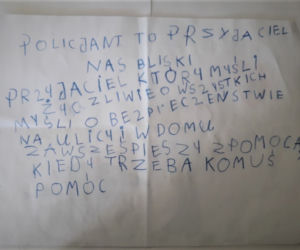 POLICJANT TO PRZYJACIEL
NAS BLISKI
PRZYJACIEL KTÓRY MYŚLI
ŻYCZLIWIE O WSZYSTKICH
MYŚLI O BEZPIECZEŃSTWIE
NA ULICY I W DOMU
ZAWSZE ŚPIESZY Z POMOCĄ
KIEDY TRZEBA KOMUŚ
POMÓC